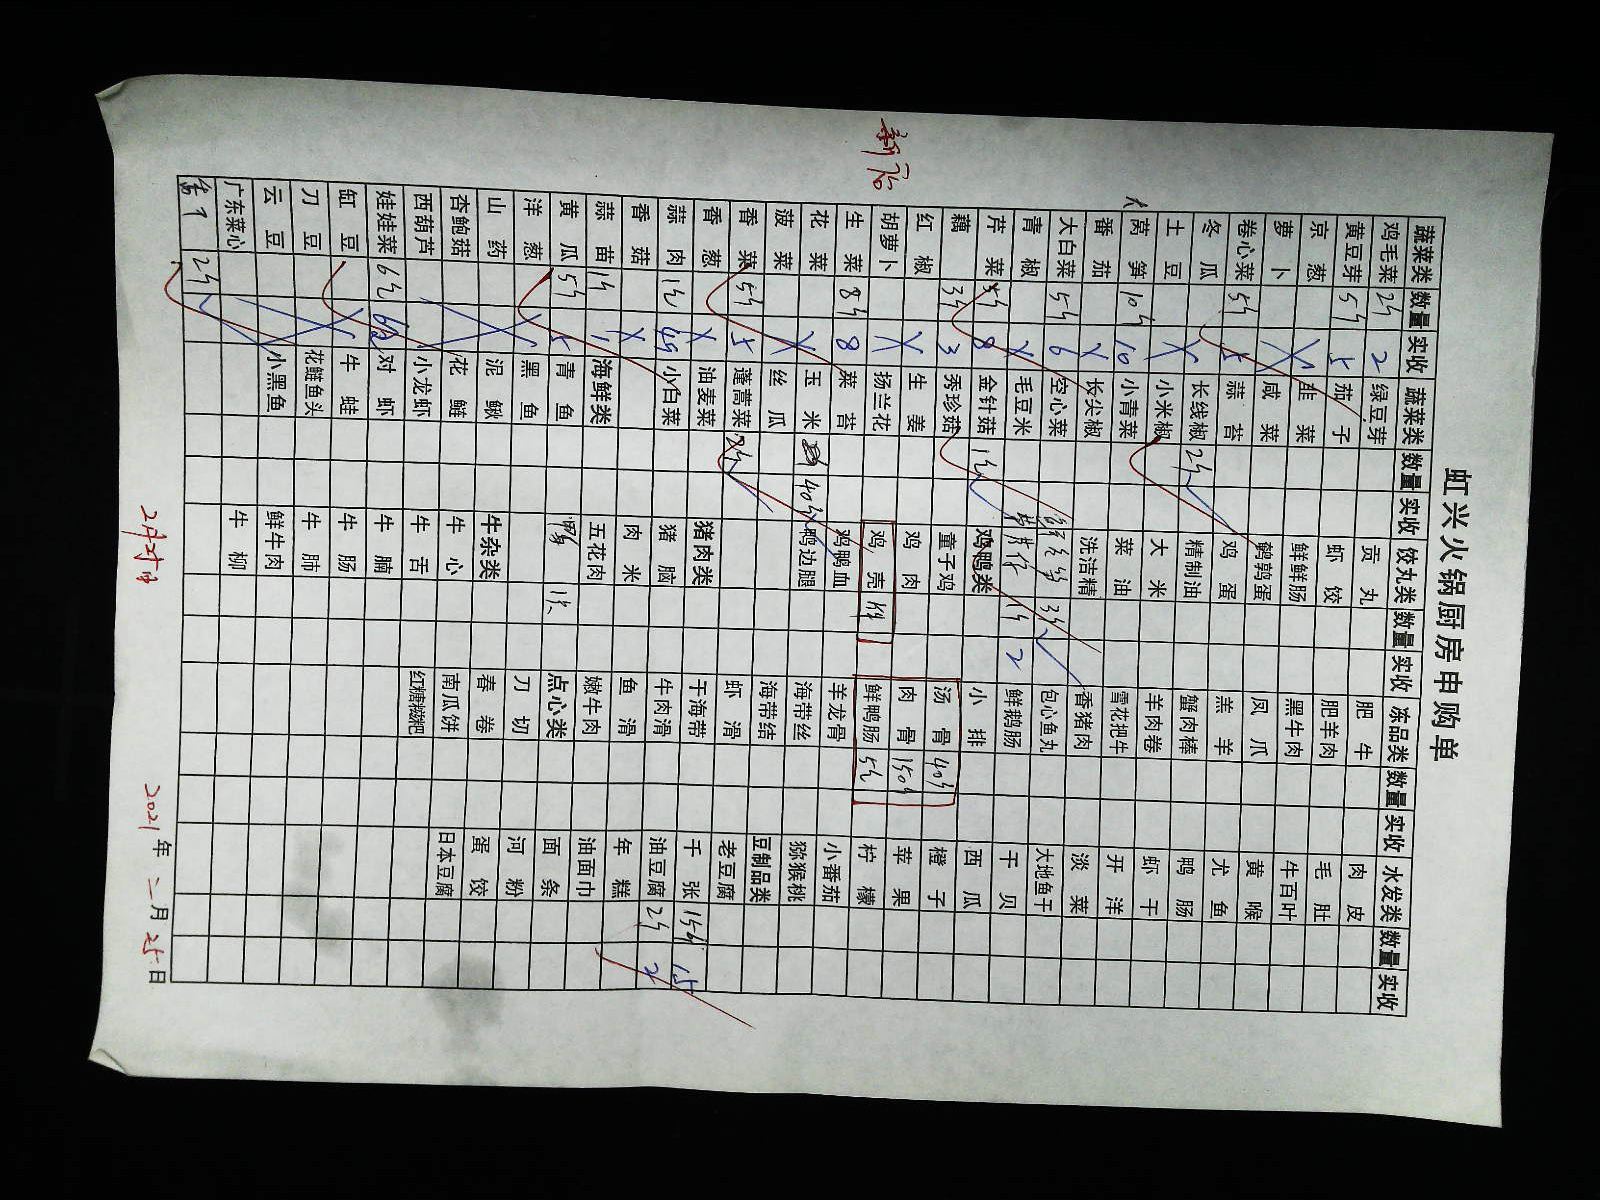 虹兴火锅厨房申购单
新店
蔬菜类 数量 实收 蔬菜类 数量 实收 饺丸类 数量 实收 冻品类 数量 实收 水发类 数量 实收
鸡毛菜 2斤 2 绿豆芽 贡丸 肥牛 肉皮
黄豆芽 5斤 5 茄子 虾饺 肥羊肉 毛肚
京葱 韭菜 鲜鲜肠 黑牛肉 牛百叶
萝卜 咸菜 鹌鹑蛋 凤爪 黄喉
卷心菜 5斤 5 蒜苔 鸡蛋 羔羊 尤鱼
冬瓜 长线椒 2斤 精制油 蟹肉棒 鸭肠
土豆 小米椒 大米 羊肉卷 虾干
大 莴笋 10斤 10 小青菜 菜油 雪花把牛 开洋
番茄 长尖椒 洗洁精 香猪肉 淡菜
大白菜 5斤 6 空心菜 3斤 包心鱼丸 大地鱼干
青椒 毛豆米 1斤 2 鲜鹅肠 干贝
芹菜 8斤 8 金针菇 1包 鸡鸭类 小排 西瓜
藕 3斤 3 秀珍菇 童子鸡 汤骨 40斤 橙子
红椒 生姜 鸡肉 肉骨 150斤 苹果
胡萝卜 扬兰花 鸡壳 1件 鲜鸭肠 5包 柠檬
生菜 8斤 8 菜苔 鸡鸭血 羊龙骨 小番茄
花菜 玉米 40斤 鸭边腿 海带丝 猕猴桃
菠菜 丝瓜 海带结 豆制品类
香菜 5斤 5 蓬蒿菜 2斤 虾滑 老豆腐
香葱 油麦菜 猪肉类 干海带 千张 15斤 15
蒜肉 1包 小白菜 猪脑 牛肉滑 油豆腐 2斤 2
香菇 肉米 鱼滑 年糕
蒜苗 1斤 1 海鲜类 五花肉 嫩牛肉 油面巾
黄瓜 5斤 5 青鱼 点心类 面条
洋葱 黑鱼 刀切 河粉
山药 泥鳅 牛杂类 春卷 蛋饺
杏鲍菇 花鲢 牛心 南瓜饼 日本豆腐
西葫芦 小龙虾 牛舌 红糖糍粑
娃娃菜 6包 6包 对虾 牛腩
缸豆 牛蛙 牛肠
刀豆 花鲢鱼头 牛肺
云豆 小黑鱼 鲜牛肉
广东菜心 牛柳
2斤
2月25日 2021年 二月 25日